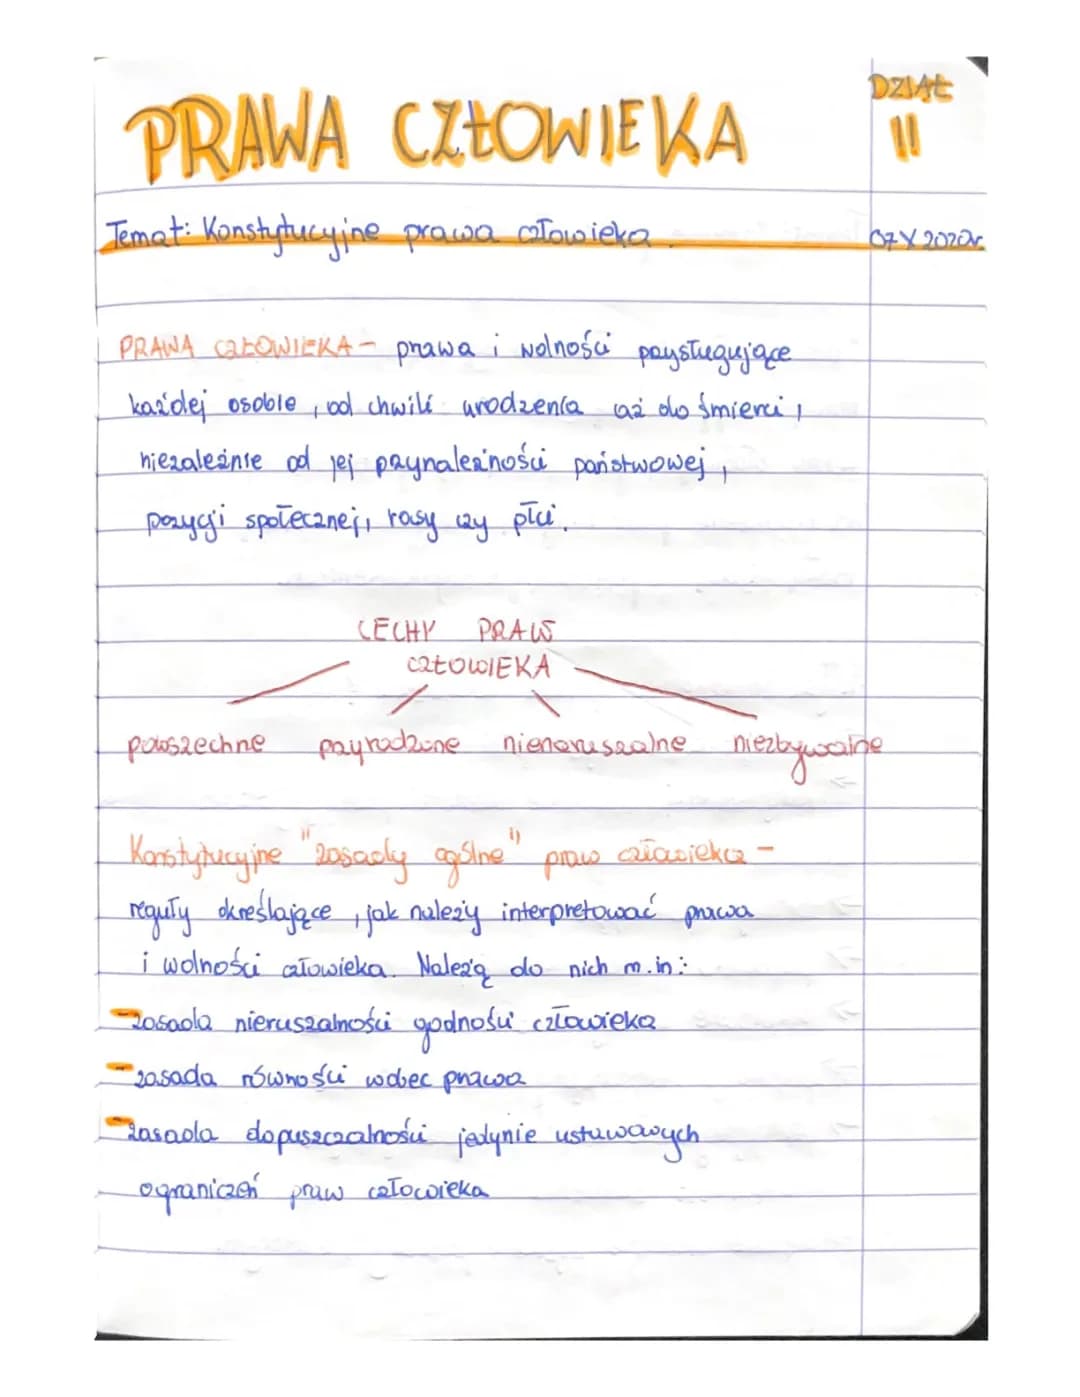 DZIAŁ
PRAWA CZŁOWIEKA II
Temat: Konstytucyjne prawa człowieka. 07 X 2020r.
PRAWA CZŁOWIEKA - prawa i wolności przysługujące
każdej osobie, od chwili urodzenia aż do śmierci,
niezależnie od jej przynależności państwowej,
pozycji społecznej, rasy czy płci.
CECHY PRAW
CZŁOWIEKA
powszechne przyrodzone nienaruszalne niezbywalne
Konstytucyjne "zasady ogólne" praw człowieka -
reguły określające, jak należy interpretować prawa
i wolności człowieka. Należą do nich m.in:
- zasada nieruszalności godności człowieka
- zasada równości wobec prawa
- zasada dopuszczalności jedynie ustawowych
ograniczeń praw człowieka